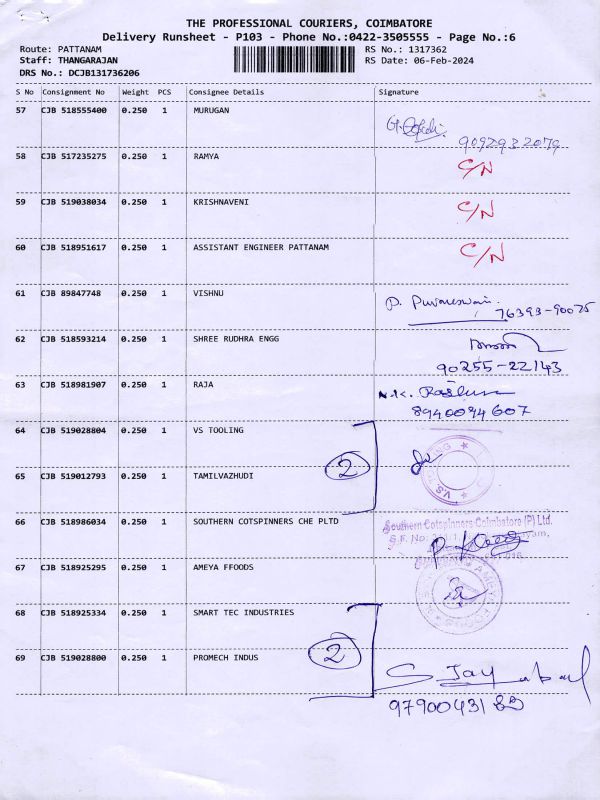 THE PROFESSIONAL COURIERS, COIMBATORE
Delivery Runsheet - P103 - Phone No.:0422-3505555 - Page No.:6
Route: PATTANAM RS No.: 1317362
Staff: THANGARAJAN RS Date: 06-Feb-2024
DRS No.: DCJB131736206
S No Consignment No Weight PCS Consignee Details Signature
57 CJB 518555400 0.250 1 MURUGAN
9092932079
58 CJB 517235275 0.250 1 RAMYA C/N
59 CJB 519038034 0.250 1 KRISHNAVENI C/N
60 CJB 518951617 0.250 1 ASSISTANT ENGINEER PATTANAM C/N
61 CJB 89847748 0.250 1 VISHNU P. Puvaneswari
76393-90075
62 CJB 518593214 0.250 1 SHREE RUDHRA ENGG
90255-22143
63 CJB 518981907 0.250 1 RAJA N.K.
8940094607
64 CJB 519028804 0.250 1 VS TOOLING
2
65 CJB 519012793 0.250 1 TAMILVAZHUDI
66 CJB 518986034 0.250 1 SOUTHERN COTSPINNERS CHE PLTD Southern Cotspinners Coimbatore (P) Ltd.
S.F. No:
67 CJB 518925295 0.250 1 AMEYA FFOODS
68 CJB 518925334 0.250 1 SMART TEC INDUSTRIES
2
69 CJB 519028800 0.250 1 PROMECH INDUS S. Jay